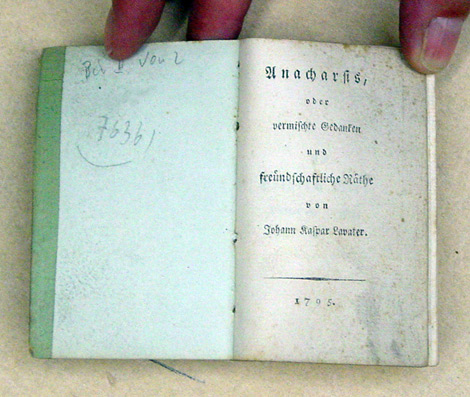 von 2
76361
Anacharsis,
oder
vermischte Gedanken
und
freündschaftliche Räthe
von
Johann Kaspar Lavater.
1795.